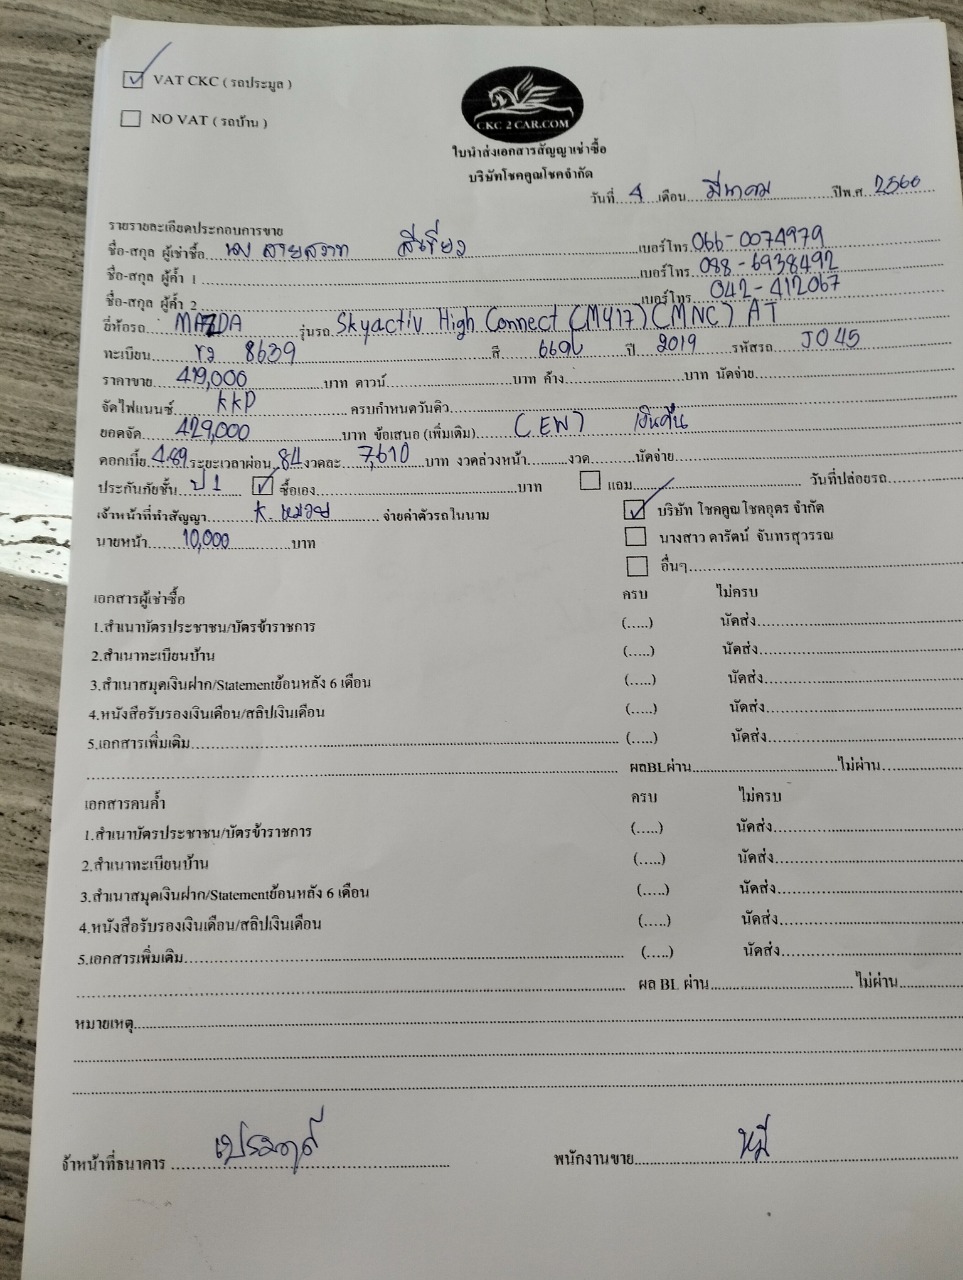 VAT CKC ( รถประมูล )
NO VAT ( รถบ้าน )
CKC 2 CAR.COM
ใบนำส่งเอกสารสัญญาเช่าซื้อ
บริษัทโชคคูณโชคจำกัด
วันที่ 4 เดือน มีนาคม ปีพ.ศ. 2566
รายรายละเอียดประกอบการขาย
ชื่อ-สกุล ผู้เช่าซื้อ นาง สายสวาท สีเขียว เบอร์โทร. 066-0074979
ชื่อ-สกุล ผู้ค้ำ 1 เบอร์โทร 088-6938492
ชื่อ-สกุล ผู้ค้ำ 2 เบอร์โทร. 042-412067
ยี่ห้อรถ MAZDA รุ่นรถ Skyactiv High Connect (MY17) (MNC) AT
ทะเบียน 8639 สี ปี 2019 รหัสรถ J045
ราคาขาย 419,000 บาท ดาวน์ บาท ค้าง บาท นัดจ่าย
จัดไฟแนนซ์ KKP ครบกำหนดวันคิว
ยอดจัด 429,000 บาท ข้อเสนอ (เพิ่มเติม) เงินคืน
ดอกเบี้ย 4.69 ระยะเวลาผ่อน 84 งวดละ 7,610 บาท งวดล่วงหน้า งวด นัดจ่าย
ประกันภัยชั้น ป 1 ซื้อเอง บาท แถม วันที่ปล่อยรถ
เจ้าหน้าที่ทำสัญญา K. หมวย จ่ายค่าตัวรถในนาม บริษัท โชคคูณโชคอุดร จำกัด
นายหน้า 10,000 บาท นางสาว ดารัตน์ จันทรสุวรรณ
อื่นๆ
เอกสารผู้เช่าซื้อ ครบ ไม่ครบ
1.สำเนาบัตรประชาชน/บัตรข้าราชการ (.....) นัดส่ง
2.สำเนาทะเบียนบ้าน (.....) นัดส่ง
3.สำเนาสมุดเงินฝาก/Statementย้อนหลัง 6 เดือน (.....) นัดส่ง
4.หนังสือรับรองเงินเดือน/สลิปเงินเดือน (.....) นัดส่ง
5.เอกสารเพิ่มเติม (.....) นัดส่ง
ผลBLผ่าน ไม่ผ่าน
เอกสารคนค้ำ ครบ ไม่ครบ
1.สำเนาบัตรประชาชน/บัตรข้าราชการ (.....) นัดส่ง
2.สำเนาทะเบียนบ้าน (.....) นัดส่ง
3.สำเนาสมุดเงินฝาก/Statementย้อนหลัง 6 เดือน (.....) นัดส่ง
4.หนังสือรับรองเงินเดือน/สลิปเงินเดือน (.....) นัดส่ง
5.เอกสารเพิ่มเติม (.....) นัดส่ง
ผล BL ผ่าน ไม่ผ่าน
หมายเหตุ
จ้าหน้าที่ธนาคาร
พนักงานขาย หมี